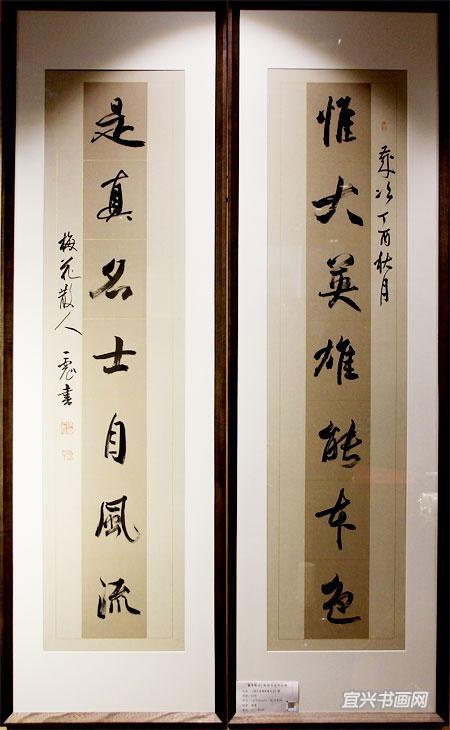 惟大英雄能本色
歲次丁酉秋月
是真名士自風流
梅花散人
宜兴书画网